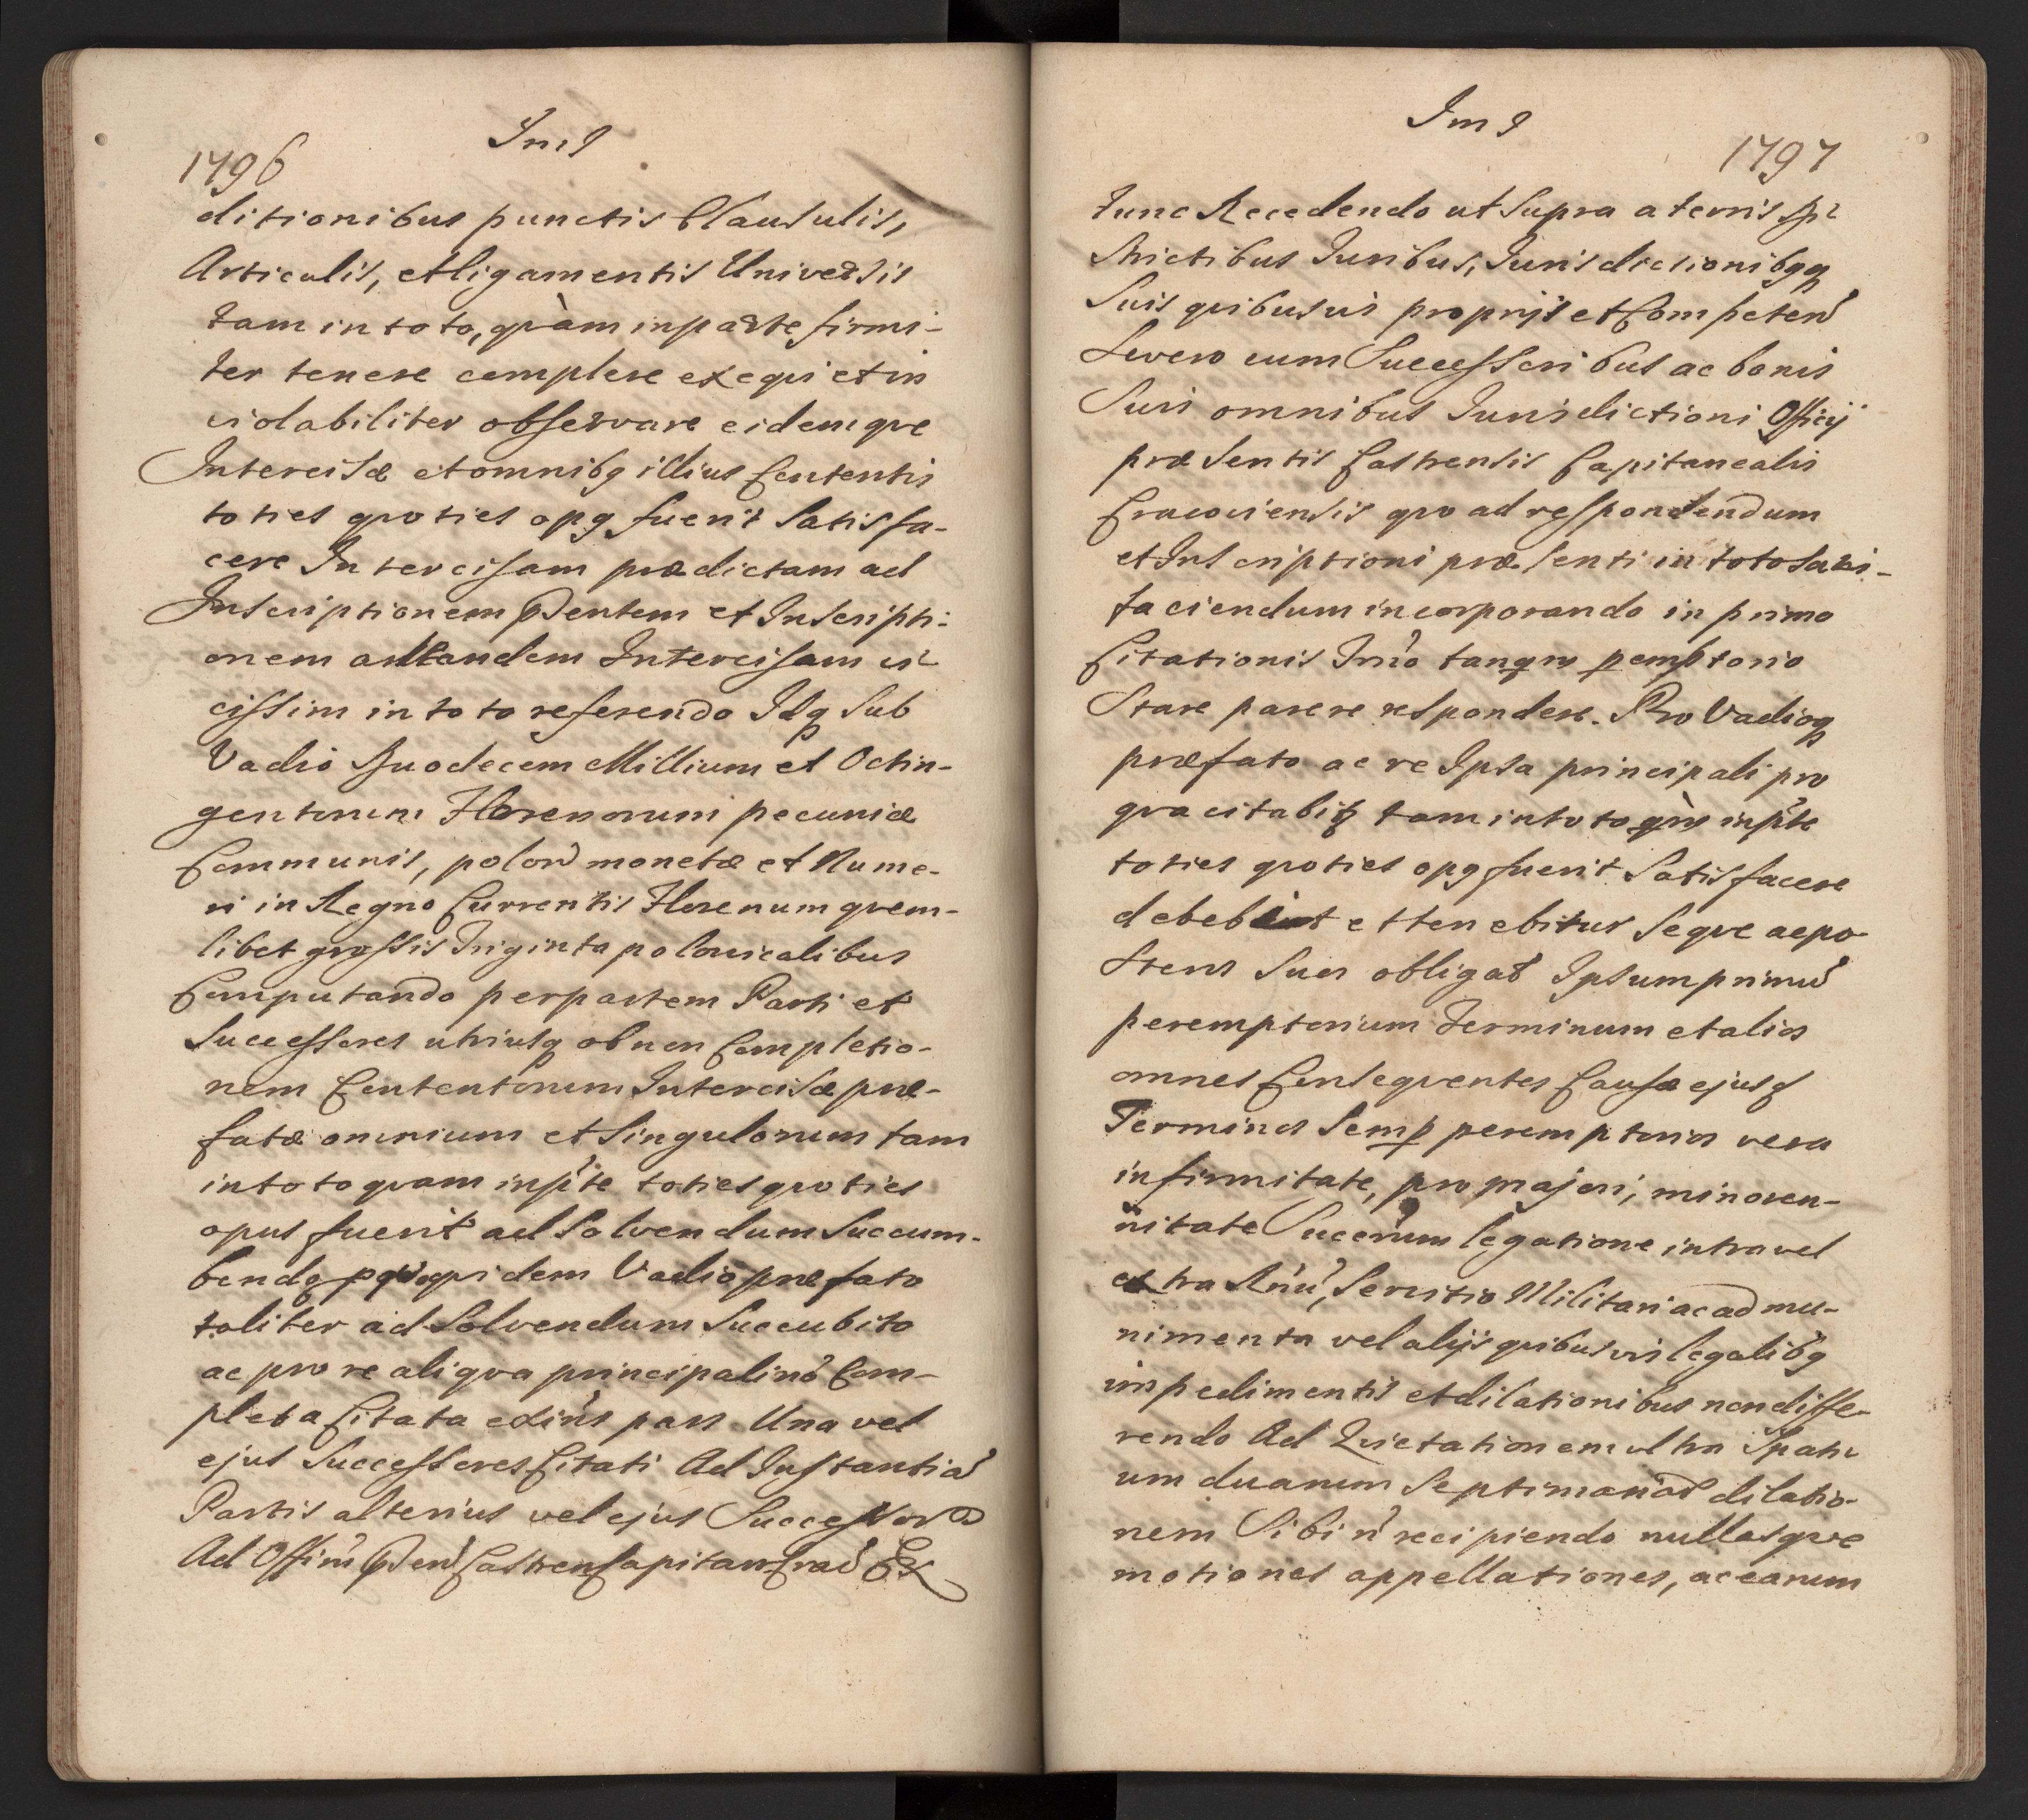 1796
Im I
ditionibus punctis Clausulis,
Articulis, et ligamentis Universis
tam in toto, qvàm in parte firmi-
ter tenere complere exeqvi et in
violabiliter observare eidemqve
Intercisæ et omnibq illius Contentis
toties qvoties opq fuerit Satisfa-
cere Intercisam prædictam ad
Inscriptionem Pntem et Inscripti-
onem ad tandem Intercisam vi
cissim in toto referendo Idq Sub
Vadio Duodecem Millium et Octin-
gentorum Florenorum pecuniæ
Communis, polon monetæ et Nume-
ri in Regno Currentis Florenum qvem-
libet grossis Triginta polonicalibus
Computando per partem Parti et
Successores utriusq ob non Completio-
nem Contentorum Intercisæ præ-
fatæ omnium et Singulorum tam
in toto qvam in pte toties qvoties
opus fuerit ad Solvendum Succum-
bendo qvidem Vadio præfato
taliter ad Solvendum Succubito
ac pro re aliqva principali no Com-
pleta Citata exius pars Una vel
ejus Successores Citati Ad Instantia
Partis alterius vel ejus Successor
Ad Offim Pen Castren Capitan Crac Ex
Im I
1797
tunc Recedendo ut Supra a terris Di
strictibus Juribus, Jurisdictionibqq
Suis qvibusvis proprijs et Competen
Severo cum Successoribus ac bonis
Suis omnibus Jurisdictioni Officij
præsentis Castrensis Capitanealis
Cracoviensis qvo ad respondendum
et Inscriptioni præsenti in toto Satis-
faciendum incorporando in primo
Citationis Trno tanqm pemptorio
Stare parere respondere. Pro Vadioq
præfato ac re Ipsa principali pro
qva citabitz tam in toto qàm in pte
toties qvoties opq fuerit Satisfacere
debebit et tenebitur Seqve ac po-
steros Suos obligat Ipsum primu
peremptorium Terminum et alios
omnes Conseqventes Causæ ejusq
Terminos Semp peremptorios vera
infirmitate, pro majori, minoren-
nitate Succrum legatione intra vel
extra Rnu, Servitio Militari ac ad mu-
nimenta vel alijs qvibusvis legalibq
impedimentis et dilationibus non diffe-
rendo Ad Qvietationem ultra Spati
um duarum Septimanar dilatio-
nem Sibi n recipiendo nullasqve
motiones appellationes, ac earum